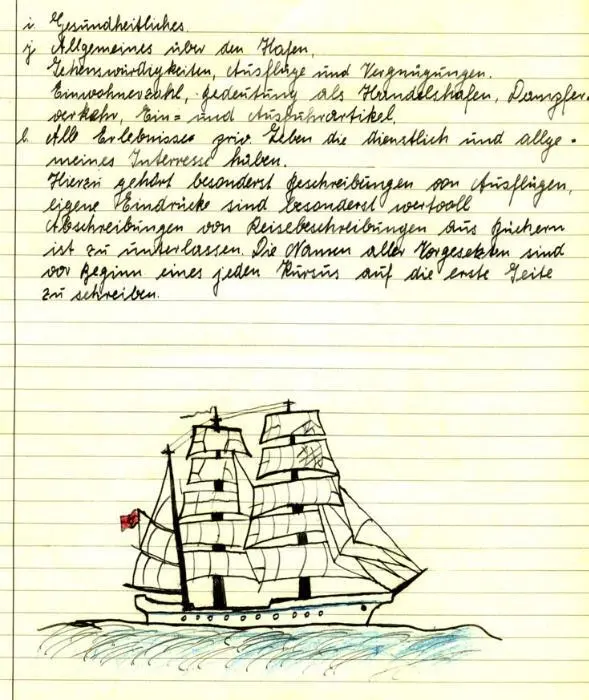 i. Gesundheitliches.
j. Allgemeines über den Hafen,
Sehenswürdigkeiten, Ausflüge und Vergnügungen.
Einwohnerzahl, Bedeutung als Handelshafen, Dampfer-
verkehr, Ein= und Ausfuhrartikel.
Alle Erlebnisse priv. Leben die dienstlich und allge-
meines Interesse haben.
Hierzu gehört besonderst Beschreibungen von Ausflügen,
eigene Eindrücke sind besonderst wertvoll
Abschreibungen von Reisebeschreibungen aus Büchern
ist zu unterlassen. Die Namen aller Vorgesetzten sind
vor Beginn eines jeden Kursus auf die erste Seite
zu schreiben.